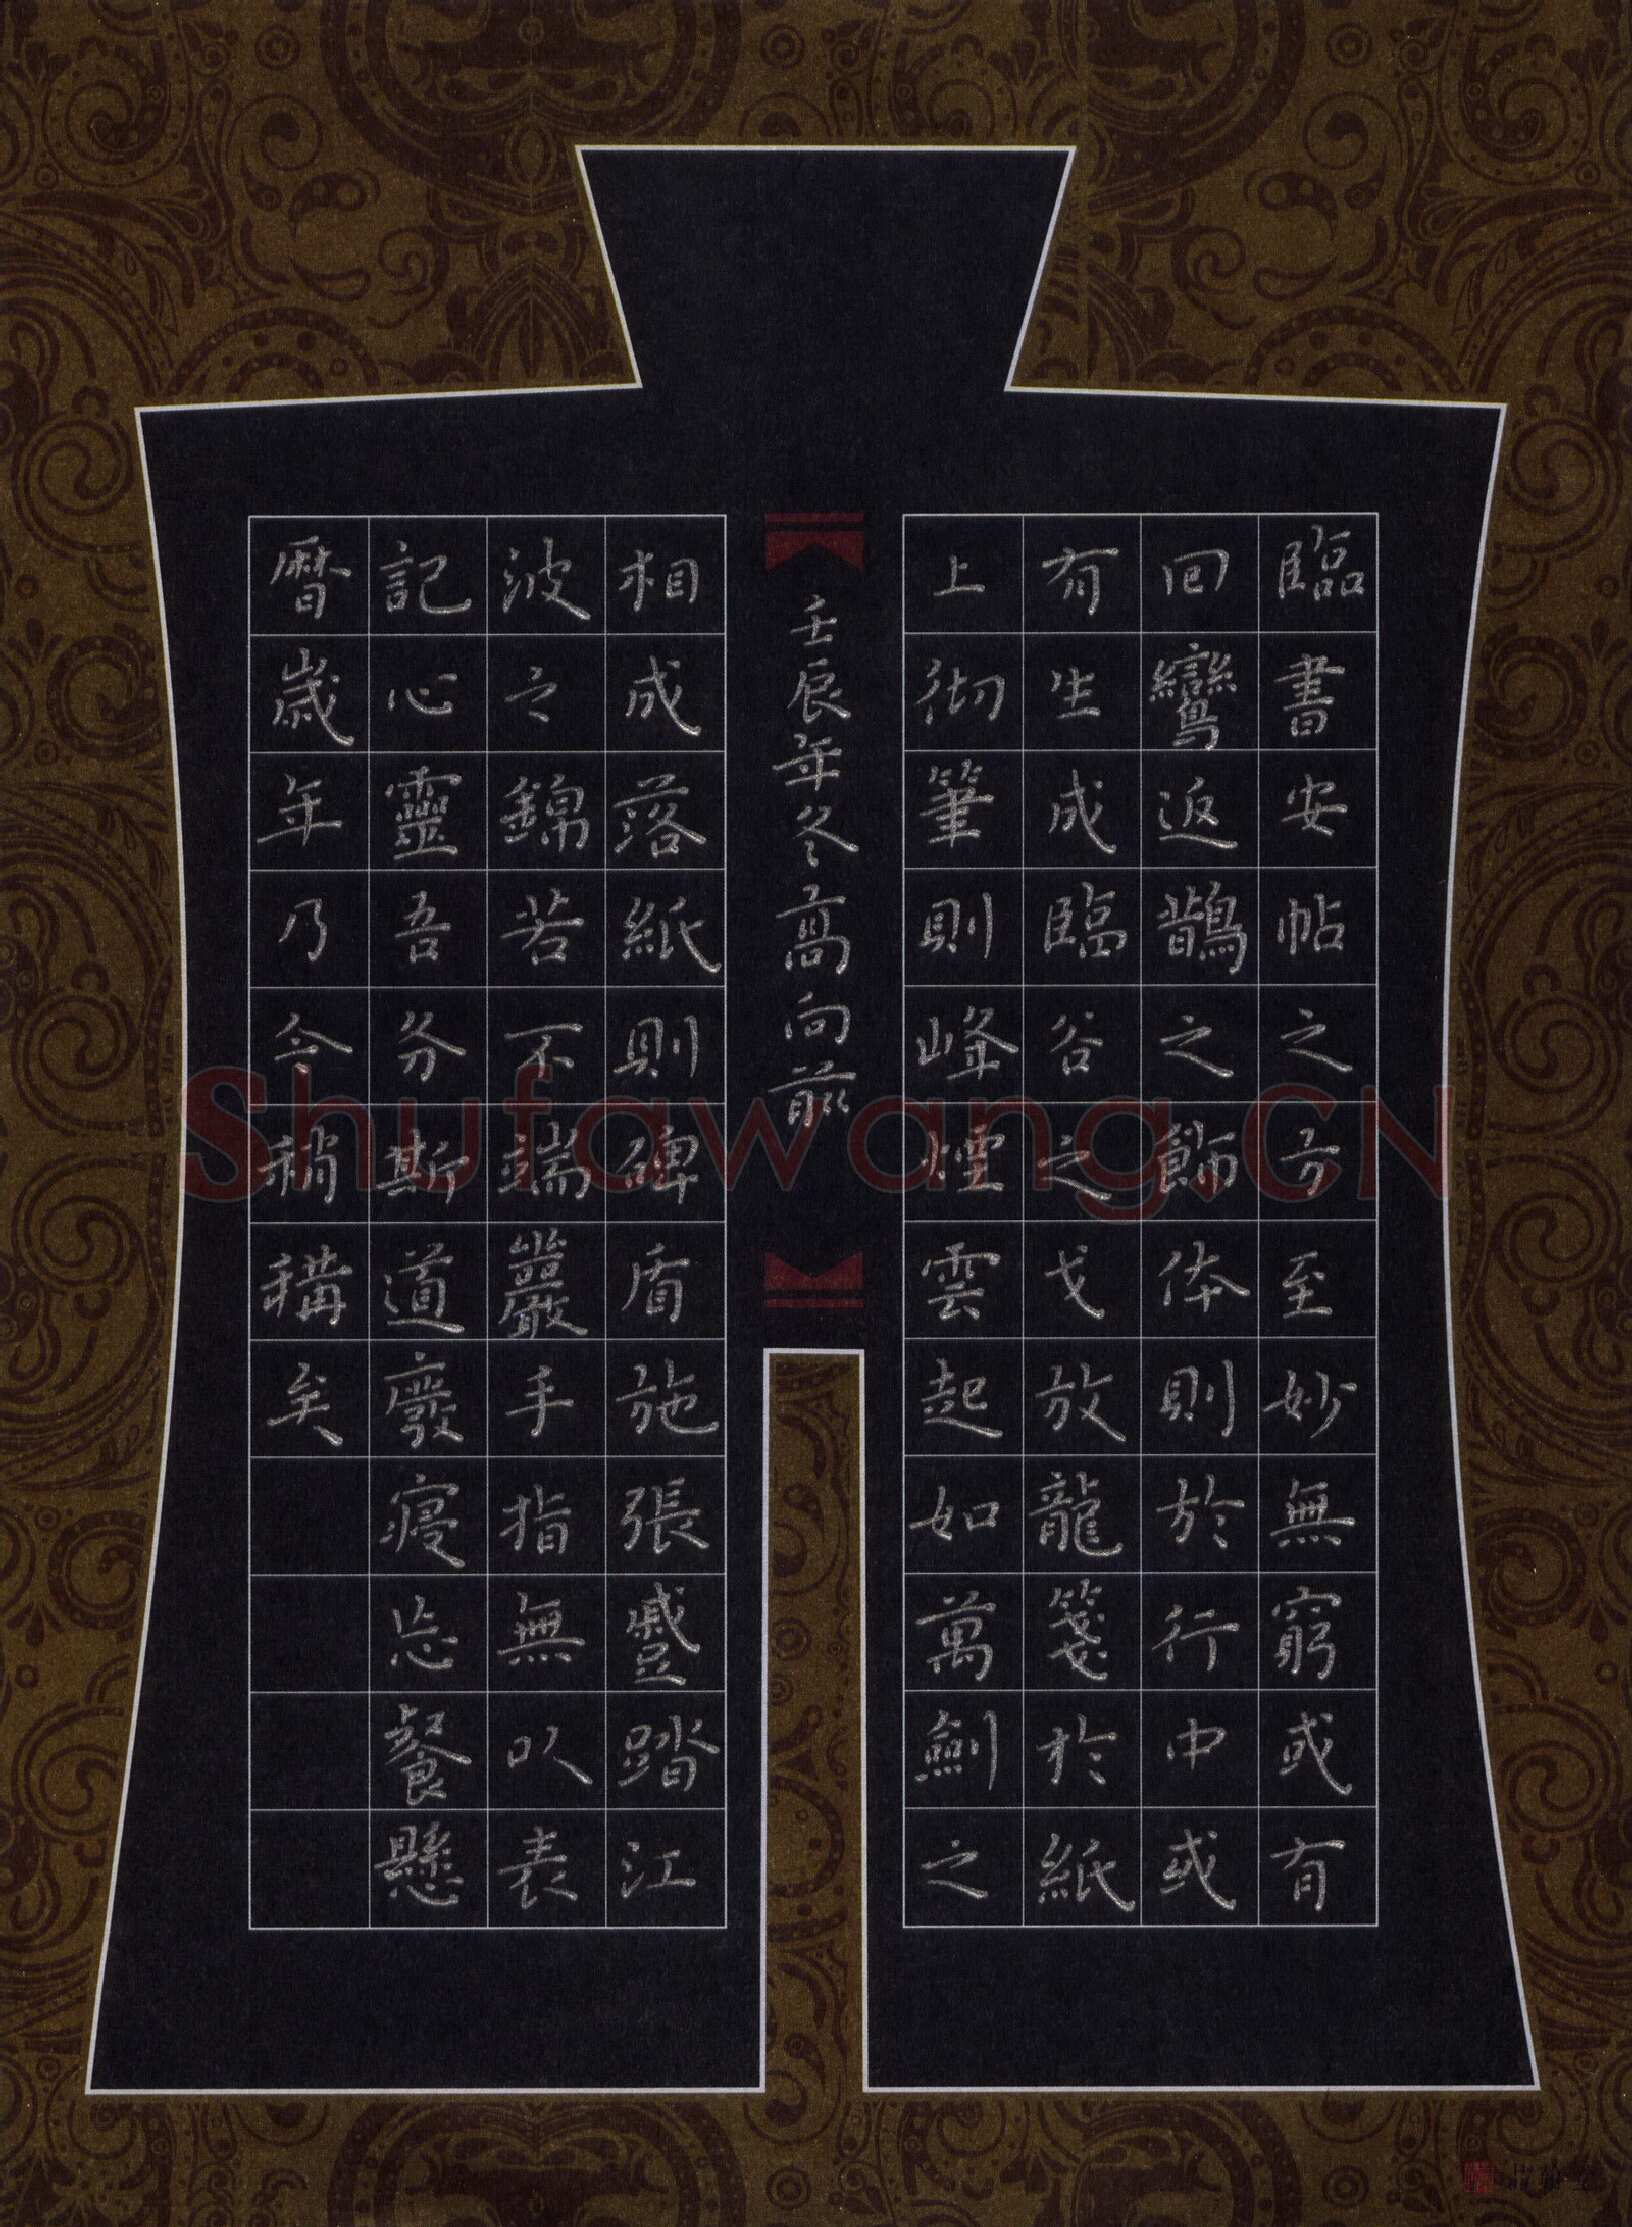 臨書安帖之奇至妙無窮或有
回鸞返鵲之飾体則於行中或
有生成臨谷之戈放龍箋於紙
上彻筆則峰煙雲起如萬劍之
相成落紙則碑盾施張蹙踏江
波之錦若不端嚴手指無以表
記心靈吾务斯道廢寝忘餐懸
曆歲年乃今稍稱矣
壬辰年冬高向前
Shufawang.CN